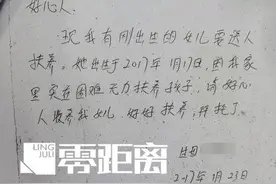 好心人:
现我有刚出生的女儿需送人
扶养。她出生于2017年1月17日,因我家
里实在困难无力扶养孩子,请好心
人收养我女儿,好好扶养,拜托了。
LING
JULI
零距离
生母
2017年1月23日